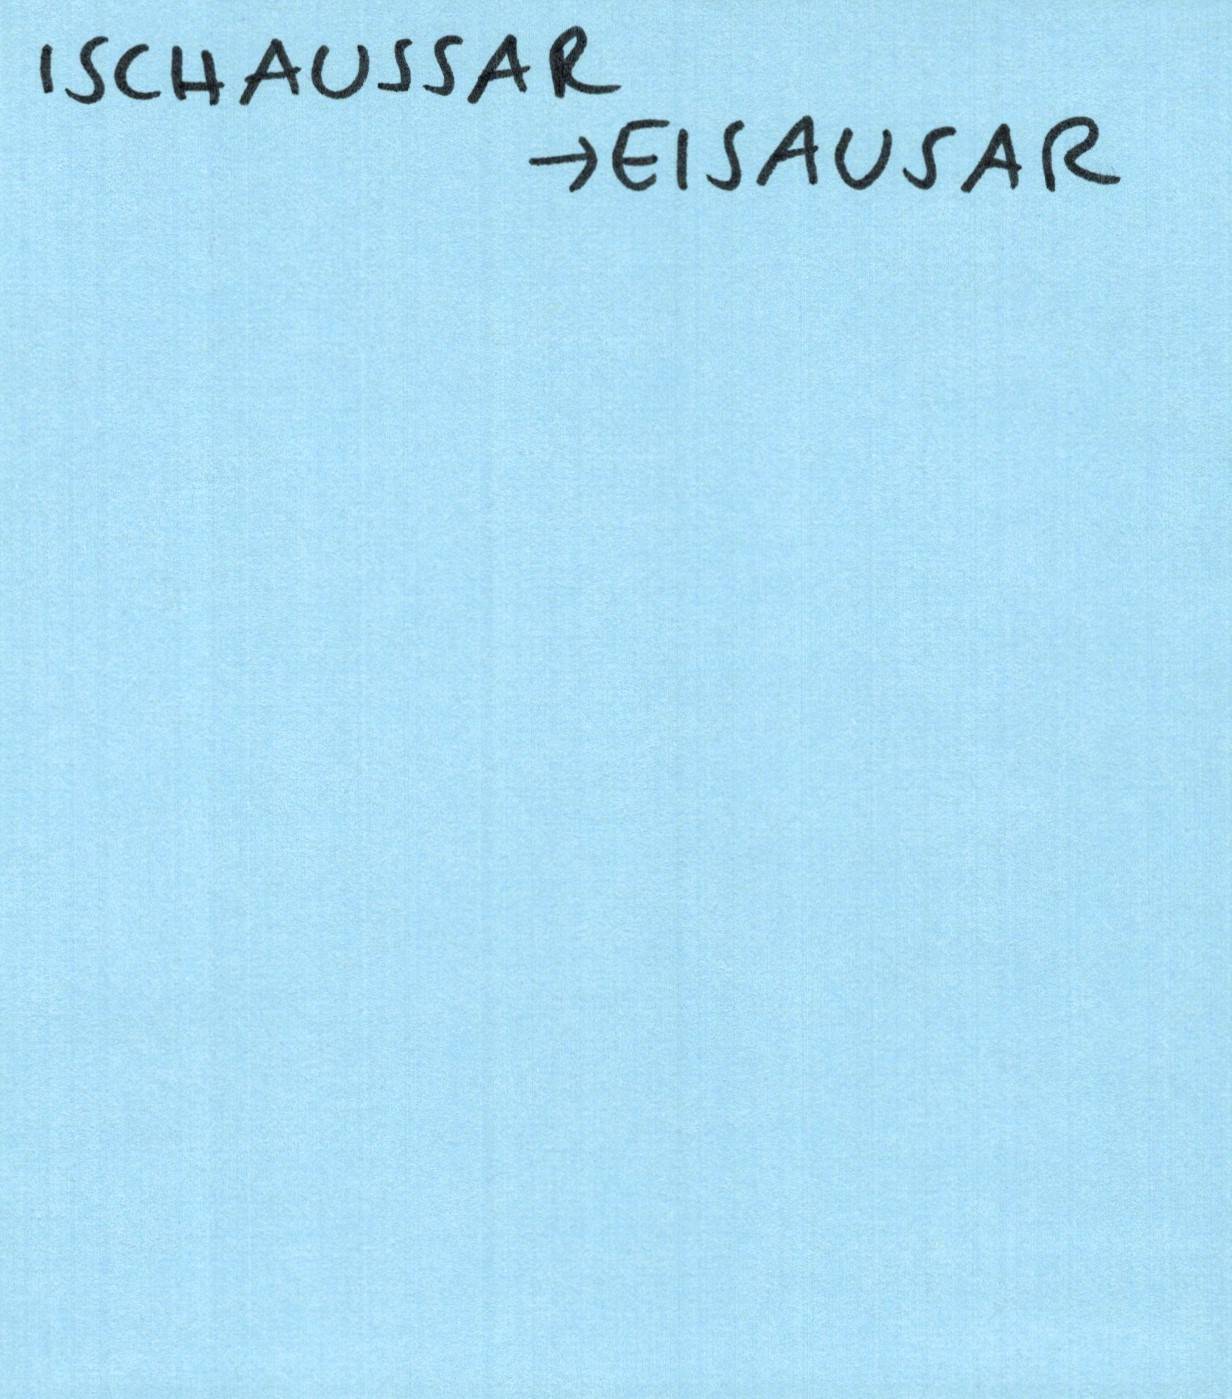 ISCHAUSSAR
→EISAUSAR